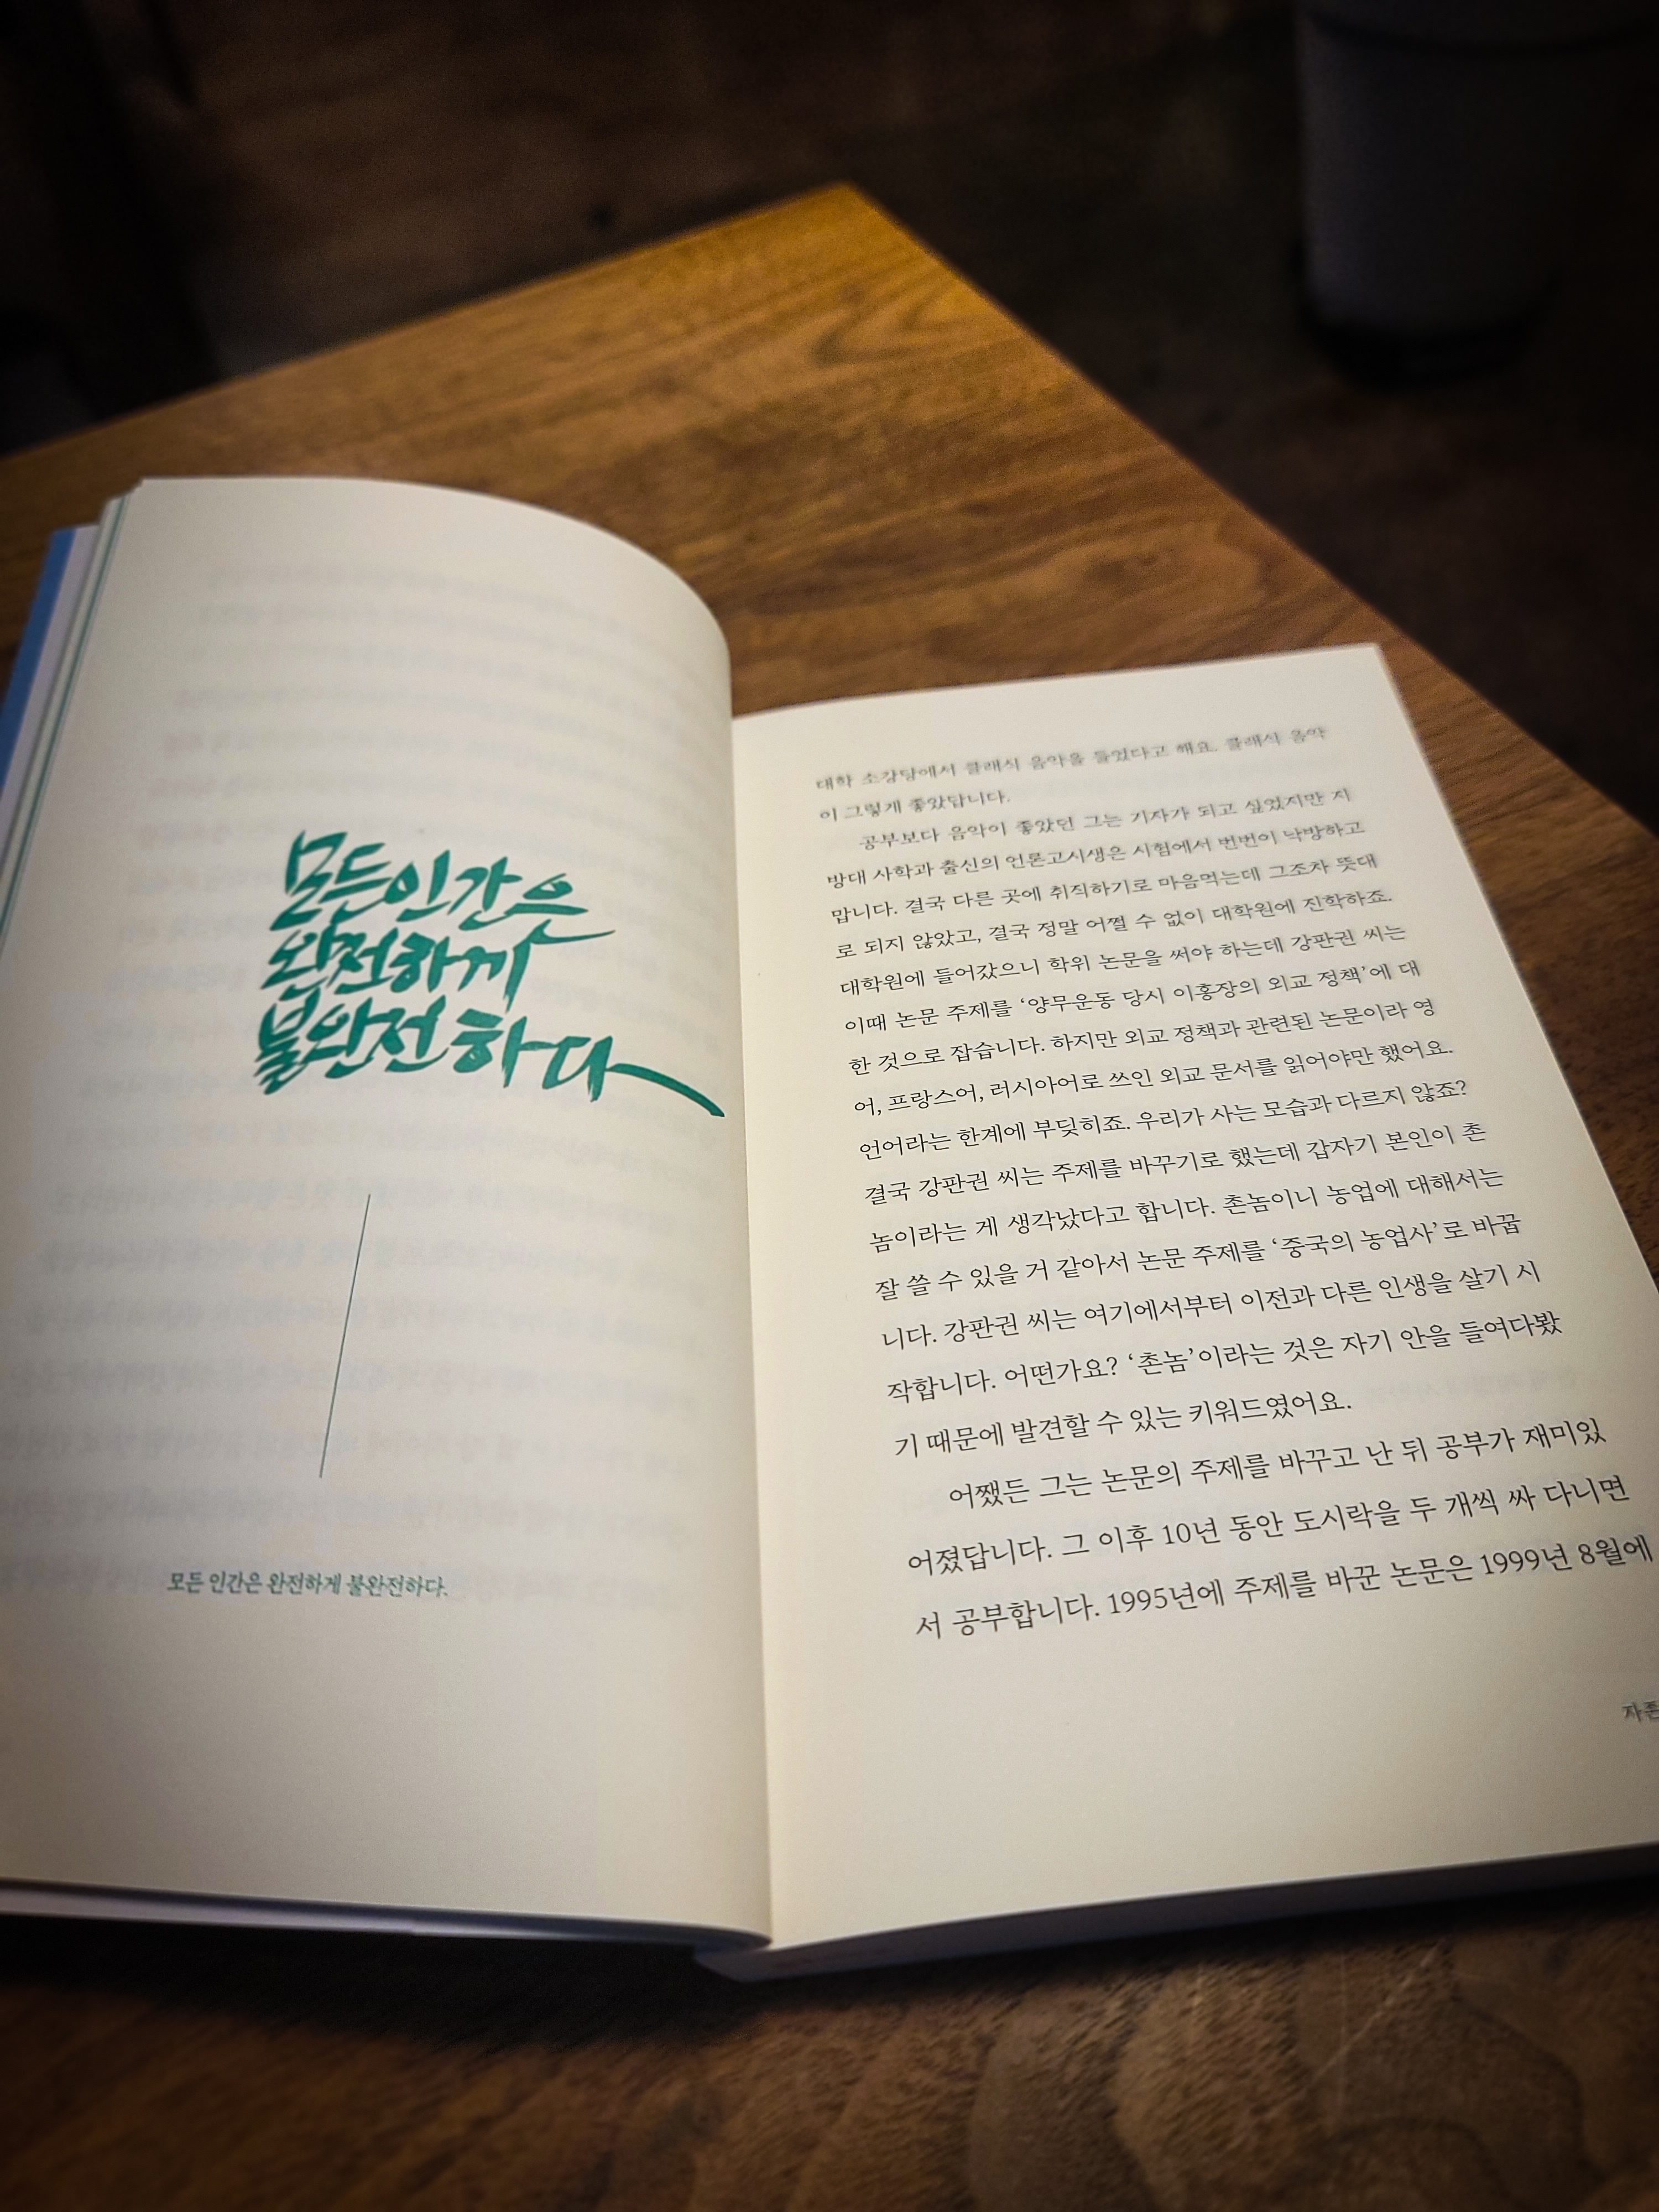 모든 인간은
완전하게
불완전하다
모든 인간은 완전하게 불완전하다.
대학 소강당에서 클래식 음악을 들었다고 해요. 클래식 음악
이 그렇게 좋았답니다.
공부보다 음악이 좋았던 그는 기자가 되고 싶었지만 지
방대 사학과 출신의 언론고시생은 시험에서 번번이 낙방하고
맙니다. 결국 다른 곳에 취직하기로 마음먹는데 그조차 뜻대
로 되지 않았고, 결국 정말 어쩔 수 없이 대학원에 진학하죠.
대학원에 들어갔으니 학위 논문을 써야 하는데 강판권 씨는
이때 논문 주제를 ‘양무운동 당시 이홍장의 외교 정책’에 대
한 것으로 잡습니다. 하지만 외교 정책과 관련된 논문이라 영
어, 프랑스어, 러시아어로 쓰인 외교 문서를 읽어야만 했어요.
언어라는 한계에 부딪히죠. 우리가 사는 모습과 다르지 않죠?
결국 강판권 씨는 주제를 바꾸기로 했는데 갑자기 본인이 촌
놈이라는 게 생각났다고 합니다. 촌놈이니 농업에 대해서는
잘 쓸 수 있을 거 같아서 논문 주제를 ‘중국의 농업사’로 바꿉
니다. 강판권 씨는 여기에서부터 이전과 다른 인생을 살기 시
작합니다. 어떤가요? ‘촌놈’이라는 것은 자기 안을 들여다봤
기 때문에 발견할 수 있는 키워드였어요.
어쨌든 그는 논문의 주제를 바꾸고 난 뒤 공부가 재미있
어졌답니다. 그 이후 10년 동안 도시락을 두 개씩 싸 다니면
서 공부합니다. 1995년에 주제를 바꾼 논문은 1999년 8월에
자존